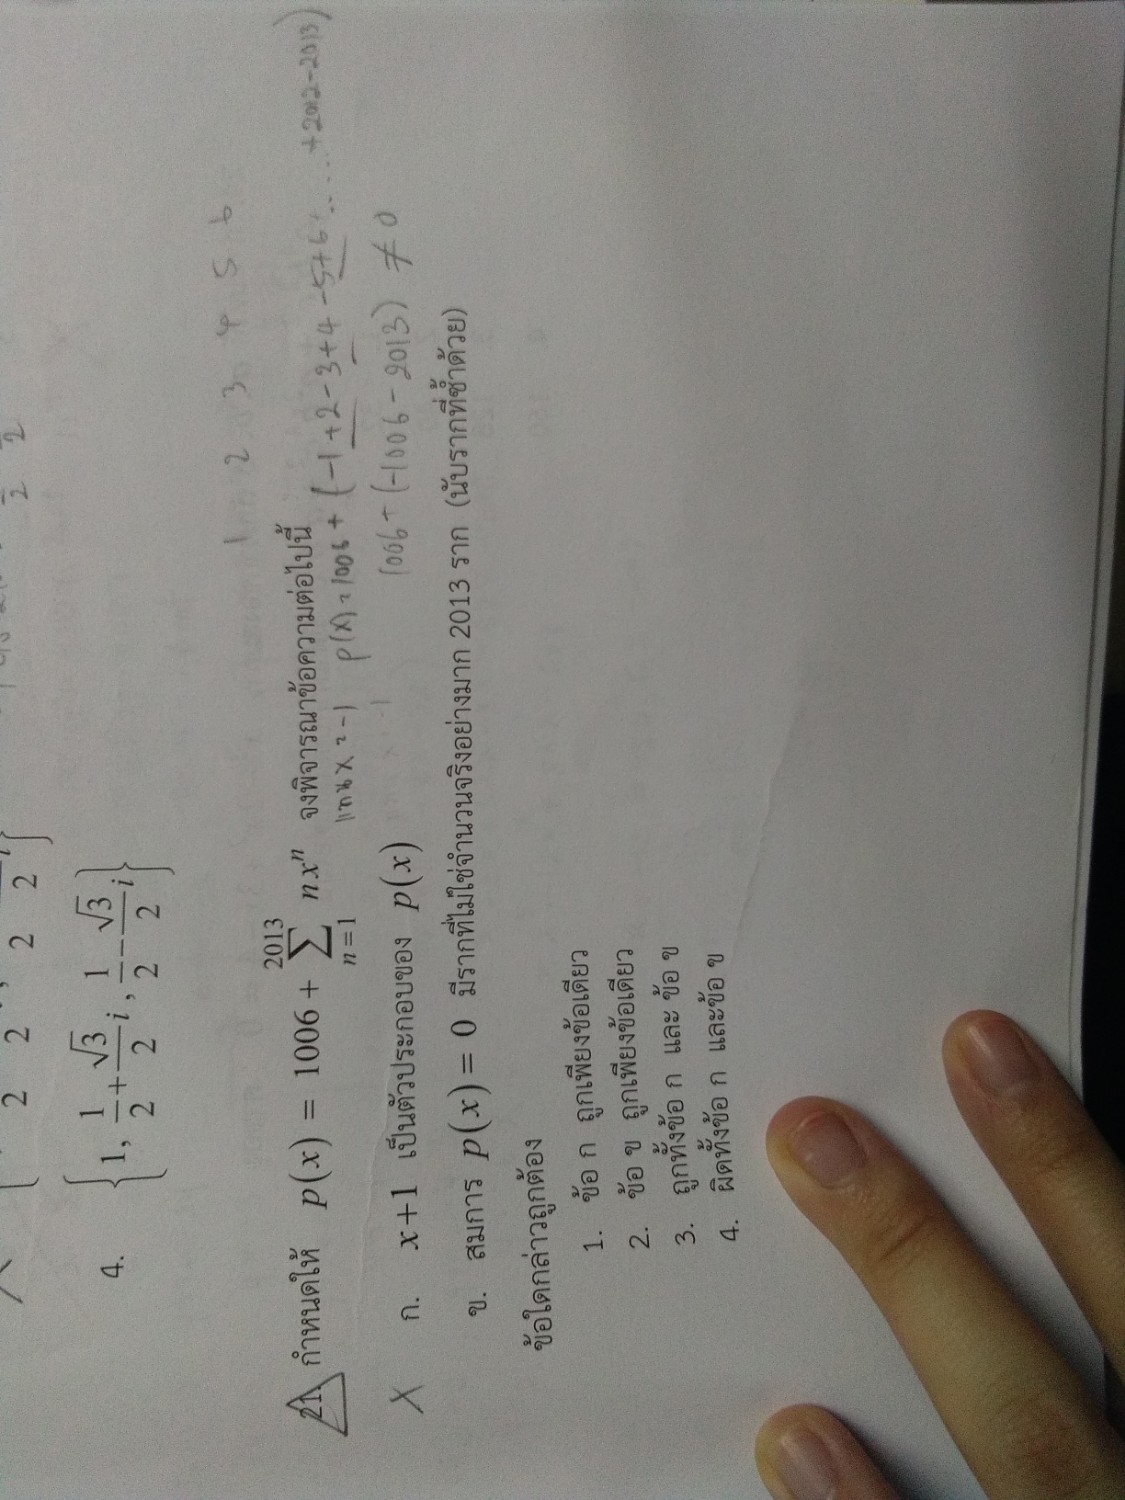 4. {1, 1/2 + √3/2 i, 1/2 − √3/2 i}
1 2 3 4 5 6
21. กำหนดให้ p(x) = 1006 + ∑_{n=1}^{2013} nx^n จงพิจารณาข้อความต่อไปนี้
แทน x = -1 p(x) = 1006 + (-1+2-3+4-5+6+....+2012-2013)
ก. x+1 เป็นตัวประกอบของ p(x)
1006 + (-1006 - 2013) ≠ 0
ข. สมการ p(x) = 0 มีรากที่ไม่ใช่จำนวนจริงอย่างมาก 2013 ราก (นับรากที่ซ้ำด้วย)
ข้อใดกล่าวถูกต้อง
1. ข้อ ก ถูกเพียงข้อเดียว
2. ข้อ ข ถูกเพียงข้อเดียว
3. ถูกทั้งข้อ ก และ ข้อ ข
4. ผิดทั้งข้อ ก และข้อ ข